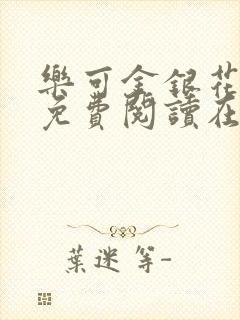 樂可金銀花
免費閱讀在
葉迷等-